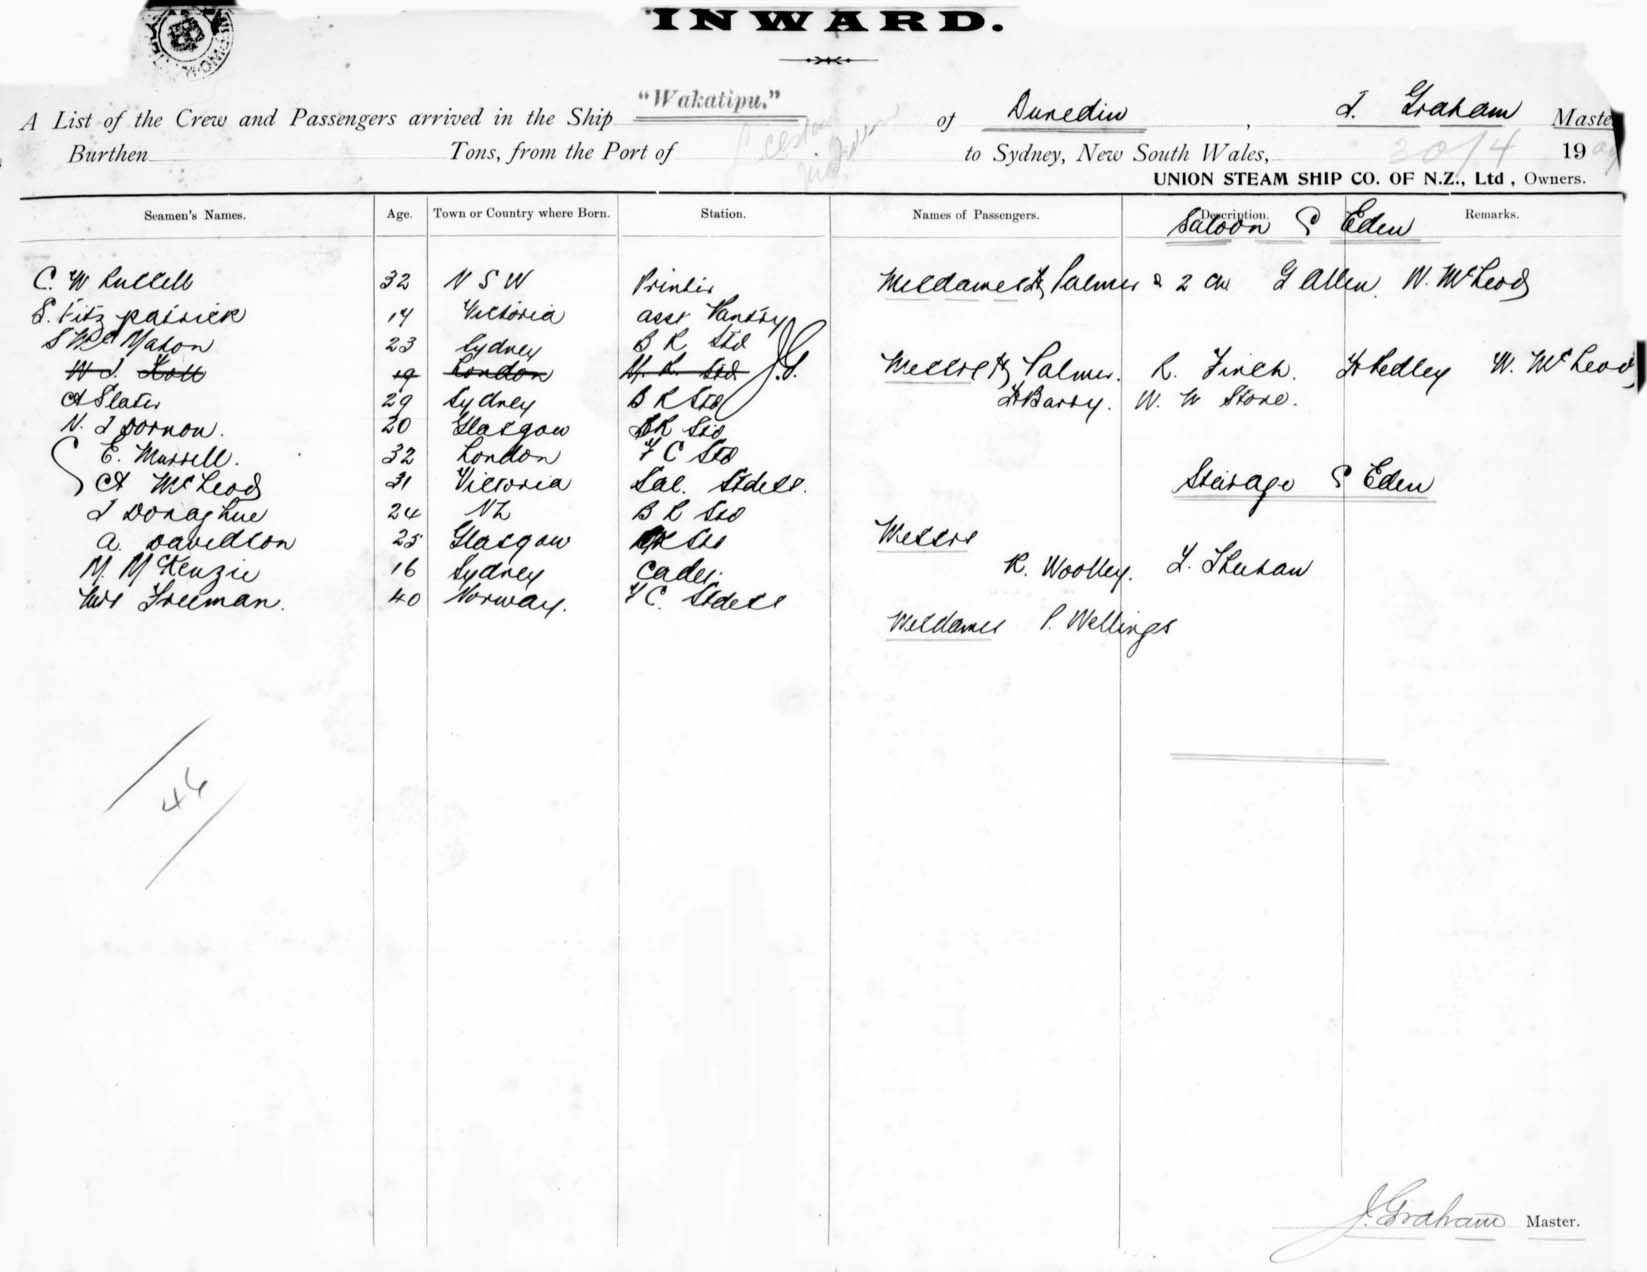 INWARD.
A List of the Crew and Passengers arrived in the Ship "Wakatipu." of Dunedin, J. Graham Master
Burthen Tons, from the Port of to Sydney, New South Wales, 30/4 19
UNION STEAM SHIP CO. OF N.Z., Ltd, Owners.
Seamen's Names. Age. Town or Country where Born. Station. Names of Passengers. Description. Remarks.
Saloon Eden
C. W Russell 32 N S W Printer Mesdames Palmer & 2 ch G Allen. W. McLeod
S. Fitzpatrick Victoria asst Pantry
Mason 23 Sydney B R Std
W J. 19 London Std. J.G. Messrs Palmer. R. Finch. H Hedley W. McLeod
A Slater 29 Sydney B R Std H Barry. W. W Stone.
N. J Dornon. 20 Glasgow BR Std
E. Murrell. 32 London F C Std
A McLeod 31 Victoria Sal. Stdess.
Steerage Eden
J Donaghue 24 NZ B R Std
A. Davidson 25 Glasgow Std Messrs
M. McKenzie 16 Sydney Cadet. R. Woolley. L. Sheehan
Mrs Freeman. 40 Norway. F C. Stdess
Mesdames P. Wellings
46
J. Graham Master.